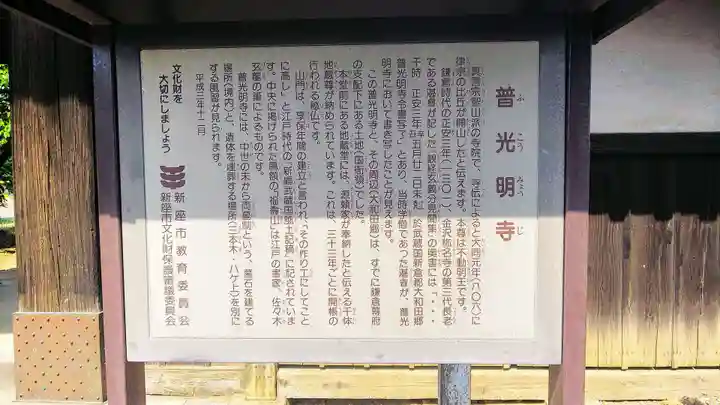 普光明寺
ふ こう みょう じ
真言宗智山派の寺院で、寺伝によると大同元年(八〇六)に
律宗の比丘が開山したと伝えます。本尊は不動明王です。
鎌倉時代の正安三年(一三〇一)、金沢称名寺の第三代長老
である湛睿が記した「観経玄義分見聞集」の奥書には「・・・
干時 正安三年辛丑五月廿二日未尅 於武蔵国新倉郡大和田郷
普光明寺令書写了」とあり、当時学僧であった湛睿が、普光
明寺において書き写したことが見えます。
この普光明寺と、その周辺(大和田郷)は、すでに鎌倉幕府
の支配下にある土地(国衙領)でした。
本堂前にある地蔵堂には、源頼家が奉納したと伝える千体
地蔵尊が納められています。これは、三十三年ごとに開帳の
行われる秘仏です。
山門は、享保年間の建立と言われ、「その作り工にしてこと
に高し」と江戸時代の『新編武蔵国風土記稿』に記されていま
す。中央に掲げられた扁額の「福壽山」は江戸の書家、佐々木
玄龍の筆によるものです。
普光明寺には、中世の末から両墓制という、墓石を建てる
場所(境内)と、遺体を埋葬する場所(三本木・ハケ上)を別に
する風習が見られます。
平成三年十二月
文化財を
大切にしましょう
新座市教育委員会
新座市文化財保護審議委員会